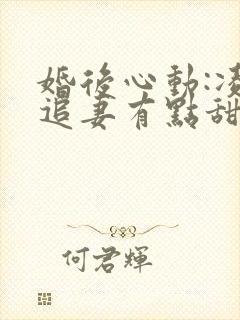 婚後心動:凌
追妻有點甜
何君輝